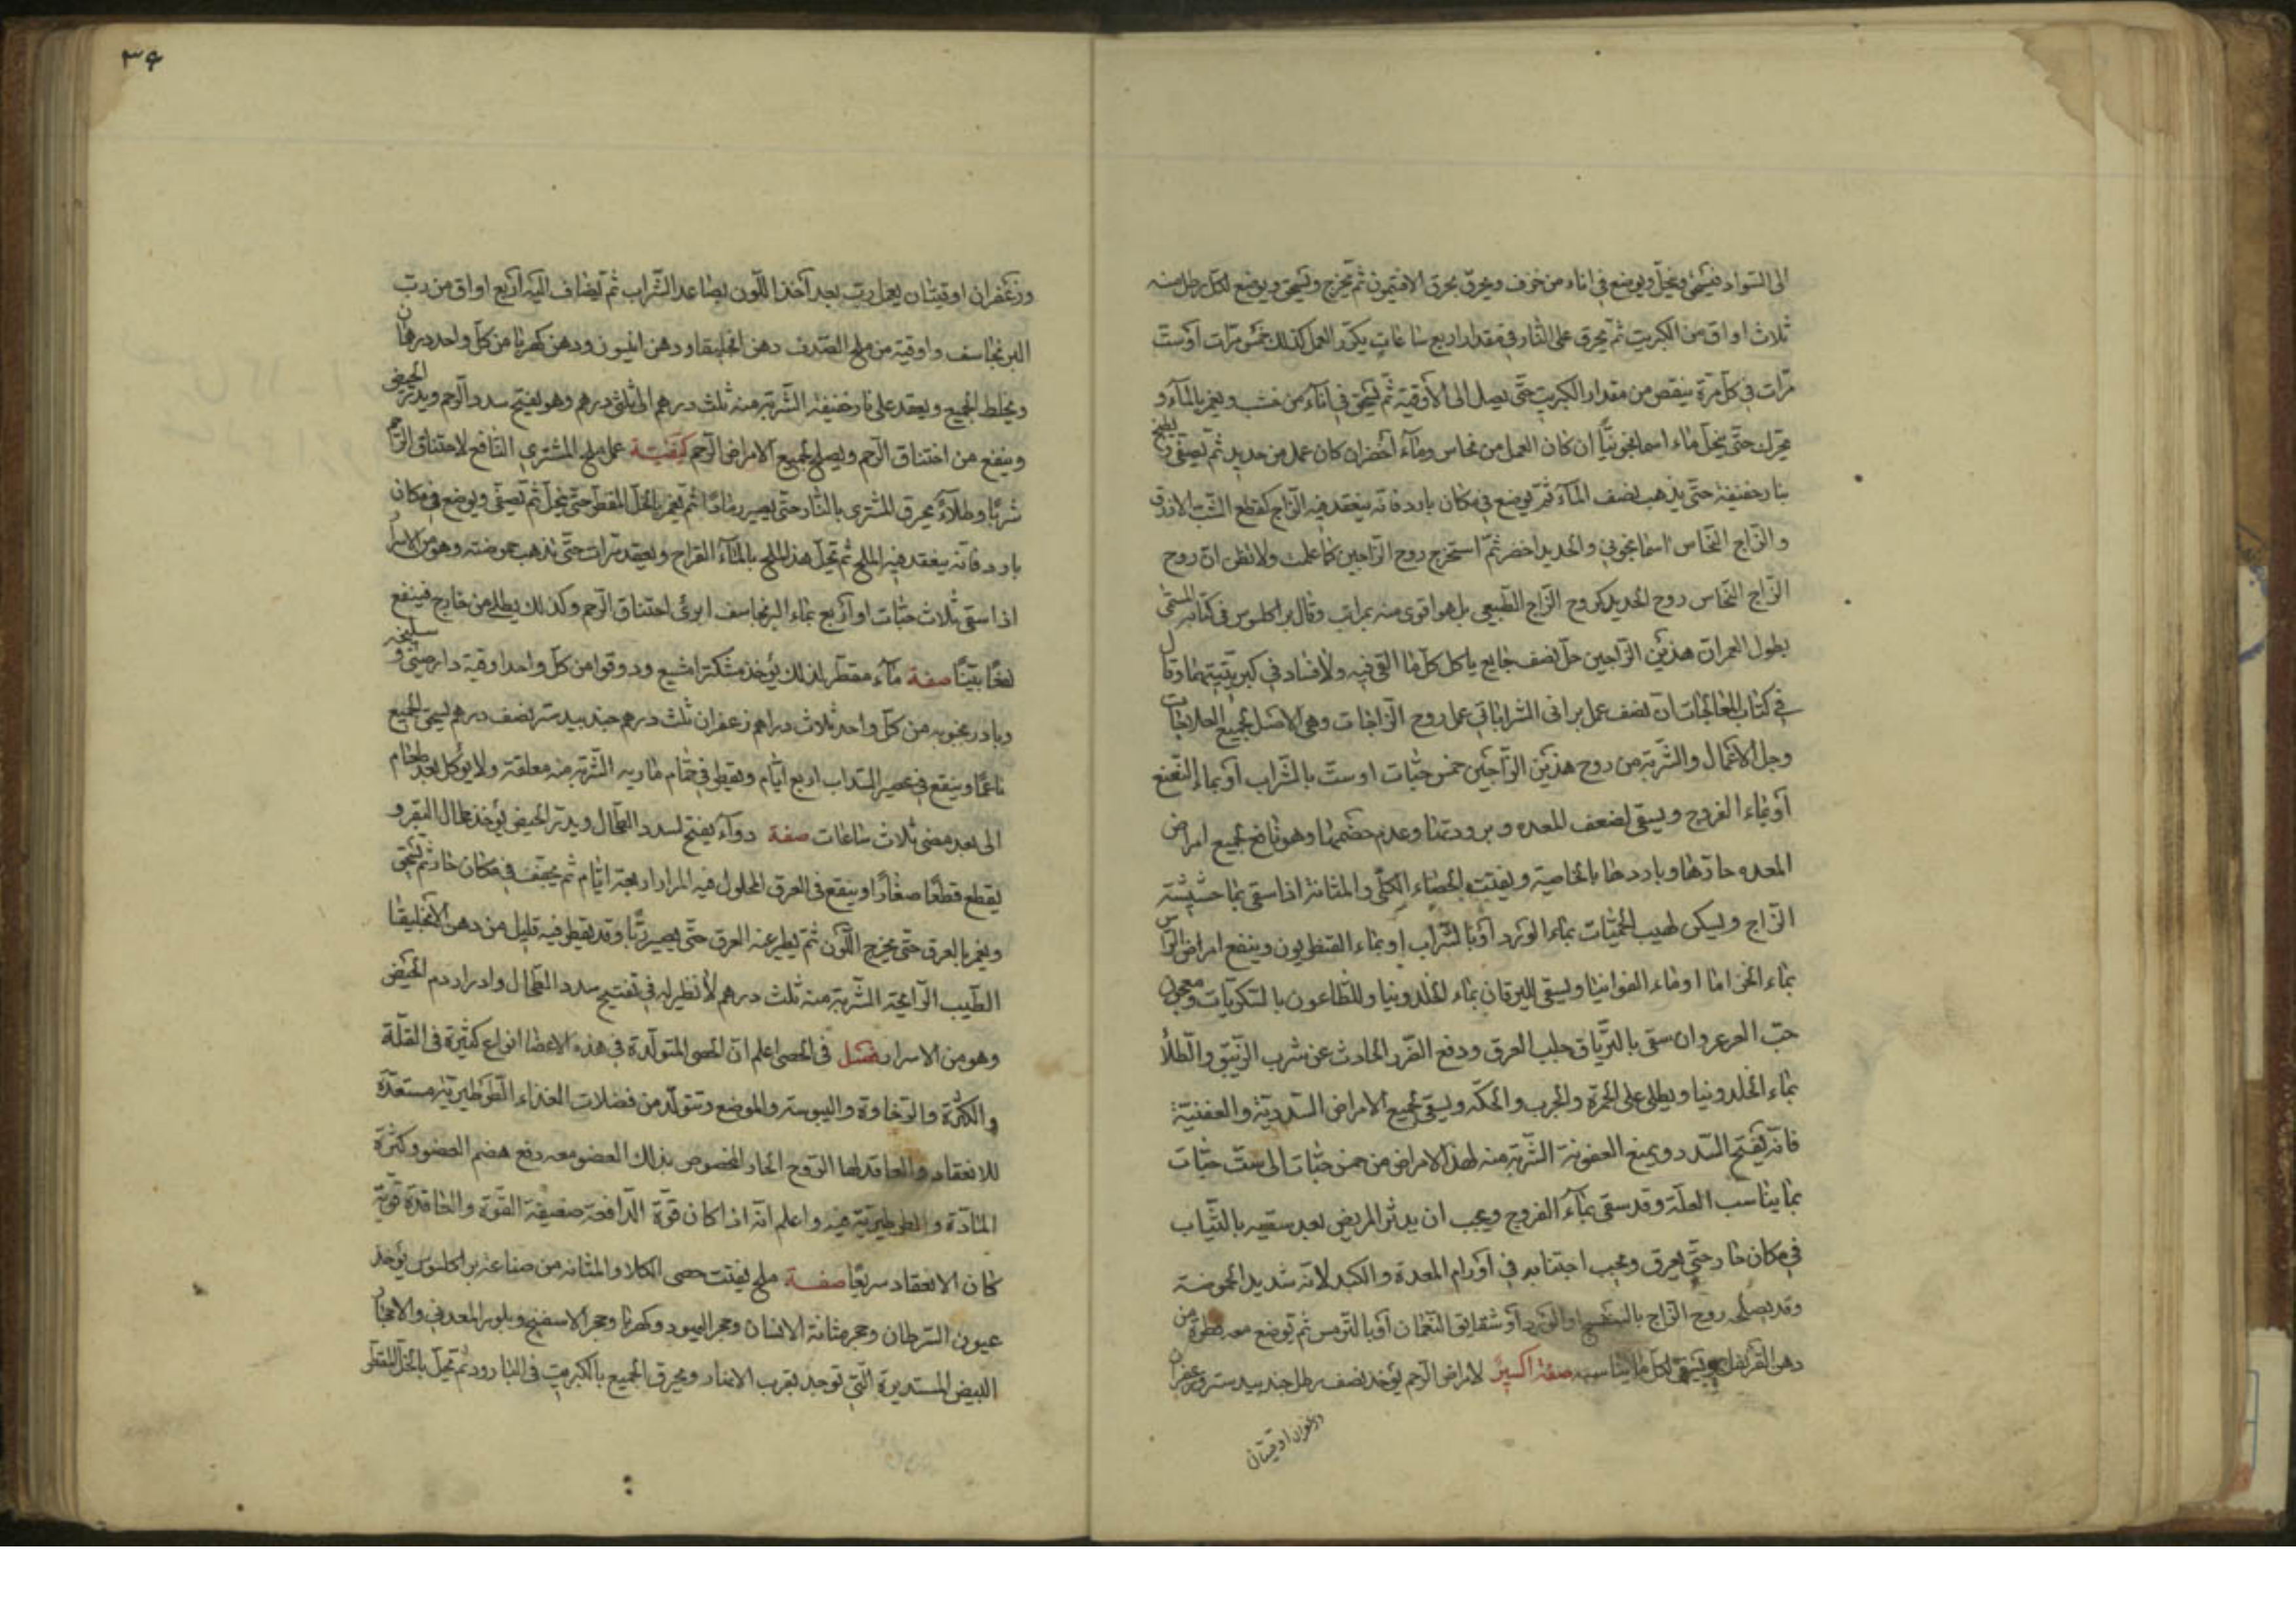 الى السواد فيسحق وينخل ويوضع في اناء من خزف ويحرق بحرق الافتيمون ثم يخرج ويسحق ويوضع لكل رطل منه
ثلاث اواق من الكبريت ثم يحرق على النار في مقدار اربع ساعات يكرر العمل كذلك خمس مرات او ست
مرات في كل مرة ينقص من مقدار الكبريت حتى يصل الى الاوقية ثم يسحق في اناء من خشب ويغمر بالماء و
يحرك حتى ينحل ماء اسمانجونيا ان كان العمل من نحاس وماء اخضر ان كان عمل من حديد ثم يصفى ويطبخ
بنار خفيفة حتى يذهب نصف الماء ثم يوضع في مكان بارد فانه ينعقد فيه الزاج كقطع الشب الازرق
والزاج النحاس اسمانجوني والحديد اخضر ثم استخرج روح الزاجين كما علمت ولا تظن ان روح
الزاج النحاس روح الحديد كروح الزاج الطبيعي بل هو اقوى منه بمراتب وقال براكلسوس في كتابه المسمى
بطول العمر ان هذين الزاجين حل نصف جايع ياكل كل ما القي فيه ولا فساد في كبريتيتهما وقال
في كتاب المعالجات ان نصف عمل براني الشراباتي عمل روح الزاجات وهي الاصل لجميع العلاجات
وجل الاعمال والشربة من روح هذين الزاجين خمس حبات او ست بالشراب او بماء النعنع
او بماء الفروج ويسقى لضعف المعده وبرودتها وعدم هضمها وهو نافع لجميع امراض
المعده حارها وباردها بالخاصية ويفتت الحصاء الكلى والمثانة اذا سقى بماء حشيشة
الزاج ويسكن لهيب الحميات بماء الورد او بالشراب او بماء القنطريون وينفع امراض الراس
بماء الخزاما او ماء الفوانيا ويسقى لليرقان بماء الخلدونيا وللطاعون بالسكريات ومعجون
حب العرعر وان سقى بالترياق جلب العرق ودفع الضرر الحادث عن شرب الزيبق والطلاء
بماء الخلدونيا ويطلى على الحمرة والجرب والحكة ويسقى لجميع الامراض السددية والعفنية
فانه يفتح السدد ويمنع العفونة الشربة منه لهذا الامراض من خمس حبات الى ست حبات
بما يناسب العلة وقد سقى بماء الفروج ويجب ان يدثر المريض بعد سقيه بالثياب
في مكان حار حتى يعرق ويجب اجتنابه في اورام المعدة والكبد لانه شديد الحموضة
وقد يصلح روح الزاج بالبنفسج او الورد او شقايق النعمان او بالترمس ثم توضع معه قطرة من
دهن القرنفل ويسقى لكل ما يناسب صفة اكسير لامراض الرحم يؤخذ نصف رطل جندبيدستر وزعفران
وزعفران اوقيتان
٣٩
وزعفران اوقيتان يعمل رب بعد اخذ اللون بصاعد الشراب ثم يضاف اليه اربع اواق من رب
البرنجاسف واوقية من ملح الصدف دهن انجليقا ودهن انيسون ودهن كهربا من كل واحد درهمان
ويخلط الجميع ويعقد على نار خفيفة الشربة منه ثلث درهم الى ثلثي درهم وهو يفتح سدد الرحم ويدر الحيض
وينفع من اختناق الرحم ويصلح لجميع الامراض الرحم كيفية عمل ملح المشتري النافع لاختناق الرحم
شربا وطلاء يحرق المشتري بالنار حتى يصير رمادا ثم يغمر بالخل المقطر حتى ينحل ثم تصفى ويوضع في مكان
بارد فانه ينعقد فيه الملح ثم تحل هذا الملح بالماء القراح ويعقد مرات حتى تذهب حموضته وهو من الاسرار
اذا سقى ثلاث حبات او اربع بماء البرنجاسف ابرئ اختناق الرحم وكذلك يطلى من خارج فينفع
نفعا بينا صفة ماء مقطر لذلك يؤخذ مشكترامشيع ودوقوا من كل واحد اوقية دارصيني وسليخه
وبادرنجبويه من كل واحد ثلاث دراهم زعفران ثلث درهم جندبيدستر نصف درهم يسحق الجميع
ناعما وينقع في عصير السداب اربع ايام ويقطر في حمام ماريه الشربة منه معلقة ولا يؤكل بعد طعام
الى بعد مضي ثلاث ساعات صفة دواء يفتح لسدد الطحال ويدر الحيض يؤخذ طحال البقر و
يقطع قطعا صغارا وينقع في العرق المحلول فيه المر اربعة ايام ثم يجفف في مكان حار ثم يسحق
ويغمر بالعرق حتى يخرج اللون ثم يطير عنه العرق حتى يصير ربا وقد يقطر فيه قليل من دهن الانجليقا
الطيب الرائحة الشربة منه ثلث درهم لا نظير له في تفتيح سدد الطحال وادرار دم الحيض
وهو من الاسرار فصل في الحصى اعلم ان الحصى المتولدة في هذه الاعضا انواع كثيرة في القلة
والكثرة والرخاوة واليبوسة والموضع وتتولد من فضلات الغذاء الطرطيرية مستعدة
للانعقاد والعاقد لها الروح الحار المخصوص بذلك العضو معه رفع هضم العضو وكثرة
المادة والطرطيرية فيه واعلم انه اذا كان قوة الدافعة ضعيفة القوة والعاقدة قوية
كان الانعقاد سريعا صفة ملح يفتت حصى الكلا والمثانه من صناعة براكلسوس يؤخذ
عيون السرطان وحجر مثانة الانسان وحجر اليهود وكهربا وحجر الاسفنج وبلور المعدني والاحجار
البيض المستديرة التي توجد بقرب الانهار ويحرق الجميع بالكبريت في البارود ثم تحل بالخل المقطر